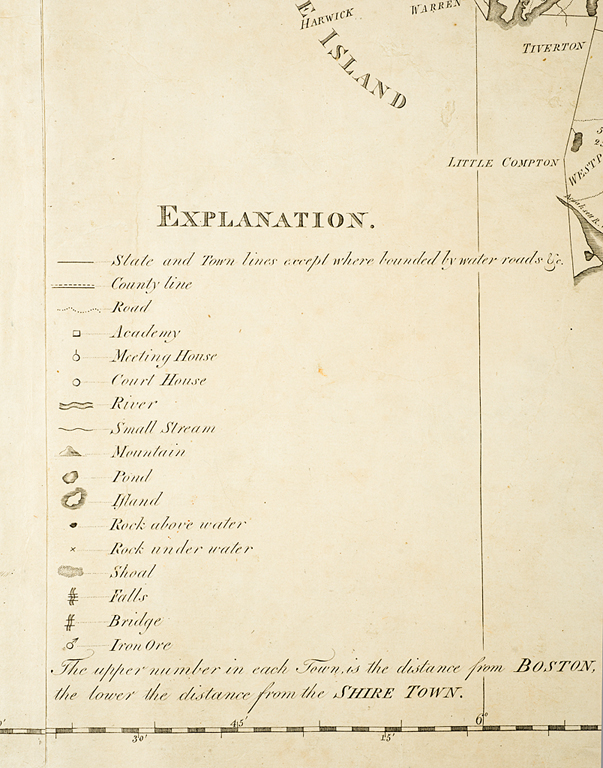 E ISLAND
HARWICK
WARREN
TIVERTON
LITTLE COMPTON
WESTP
EXPLANATION.
State and Town lines except where bounded by water roads &c.
County line
Road
Academy
Meeting House
Court House
River
Small Stream
Mountain
Pond
Iſland
Rock above water
Rock under water
Shoal
Falls
Bridge
Iron Ore
The upper number in each Town, is the distance from BOSTON,
the lower the distance from the SHIRE TOWN.
45'
6°
30'
15'